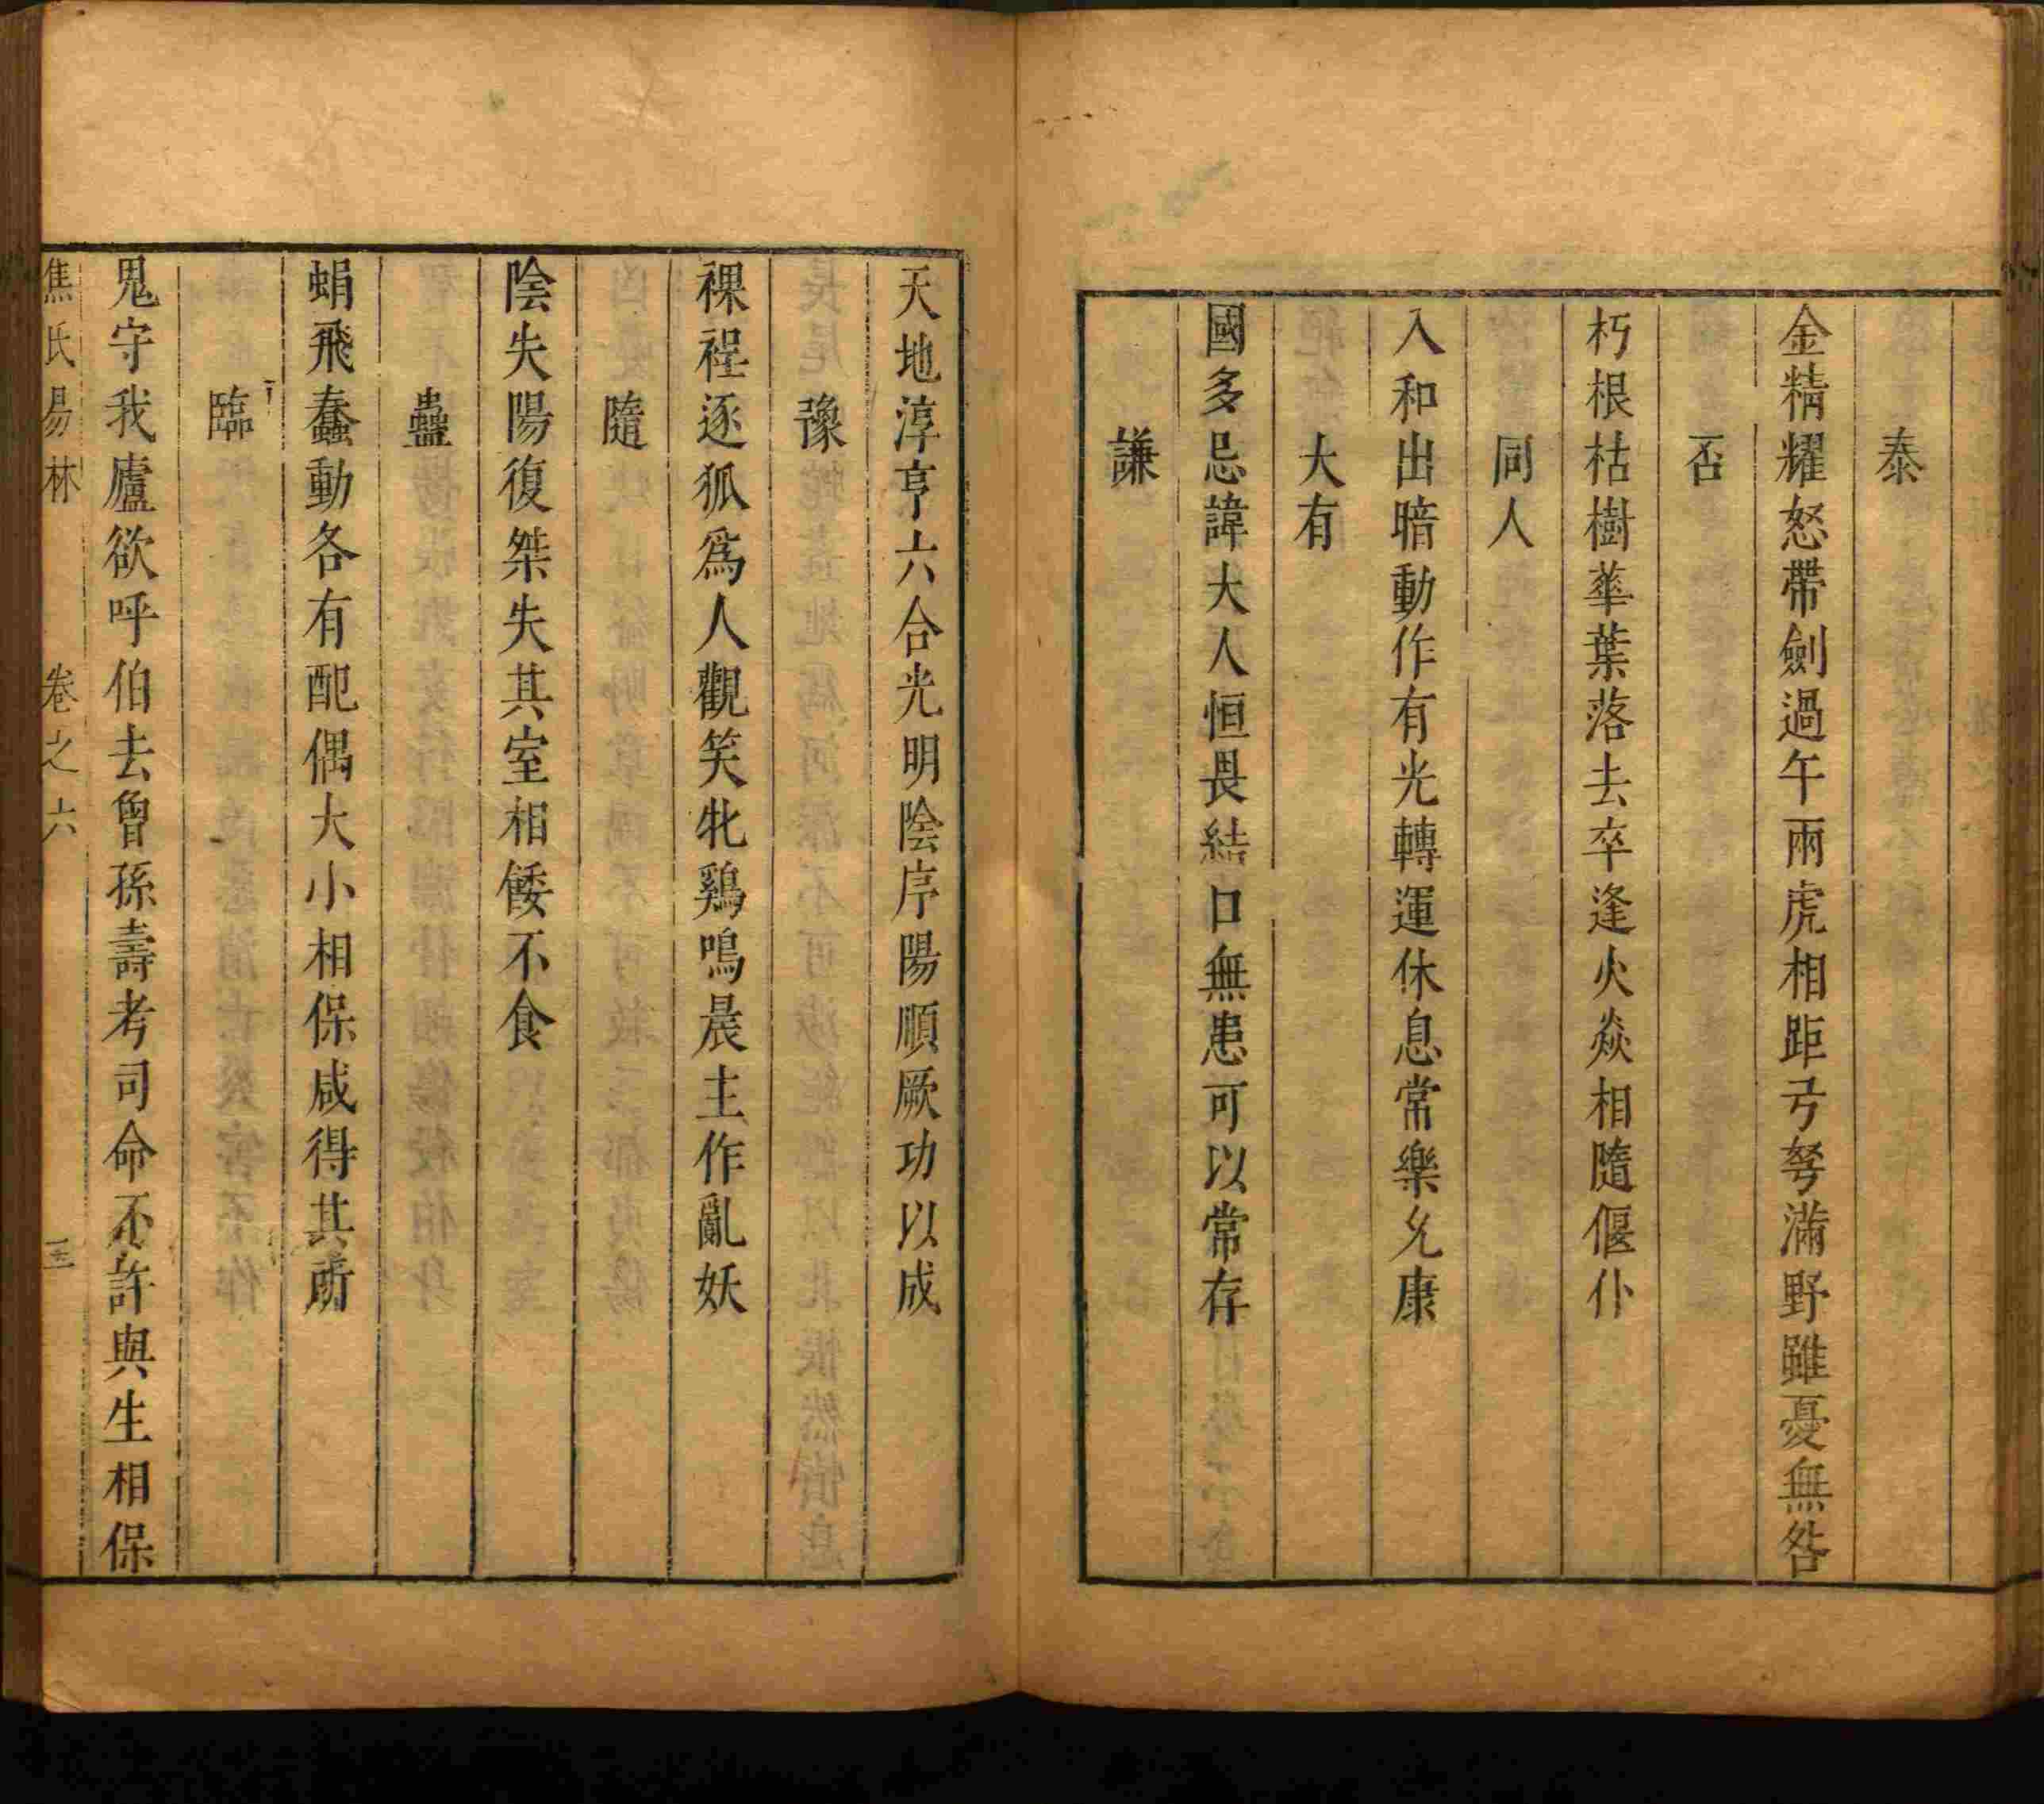 泰
金精耀怒帶劍過午兩虎相距弓弩滿野雖憂無咎
否
朽根枯樹華葉落去卒逢火焱相隨偃仆
同人
入和出暗動作有光轉運休息常樂允康
大有
國多忌諱大人恒畏結口無患可以常存
謙
天地淳亨六合光明陰序陽順厥功以成
豫
裸裎逐狐爲人觀笑牝鷄鳴晨主作亂妖
隨
陰失陽復桀失其室相餧不食
蠱
蜎飛蠢動各有配偶大小相保咸得其所
臨
鬼守我廬欲呼伯去曾孫壽考司命不許與生相保
焦氏易林 卷之六 三